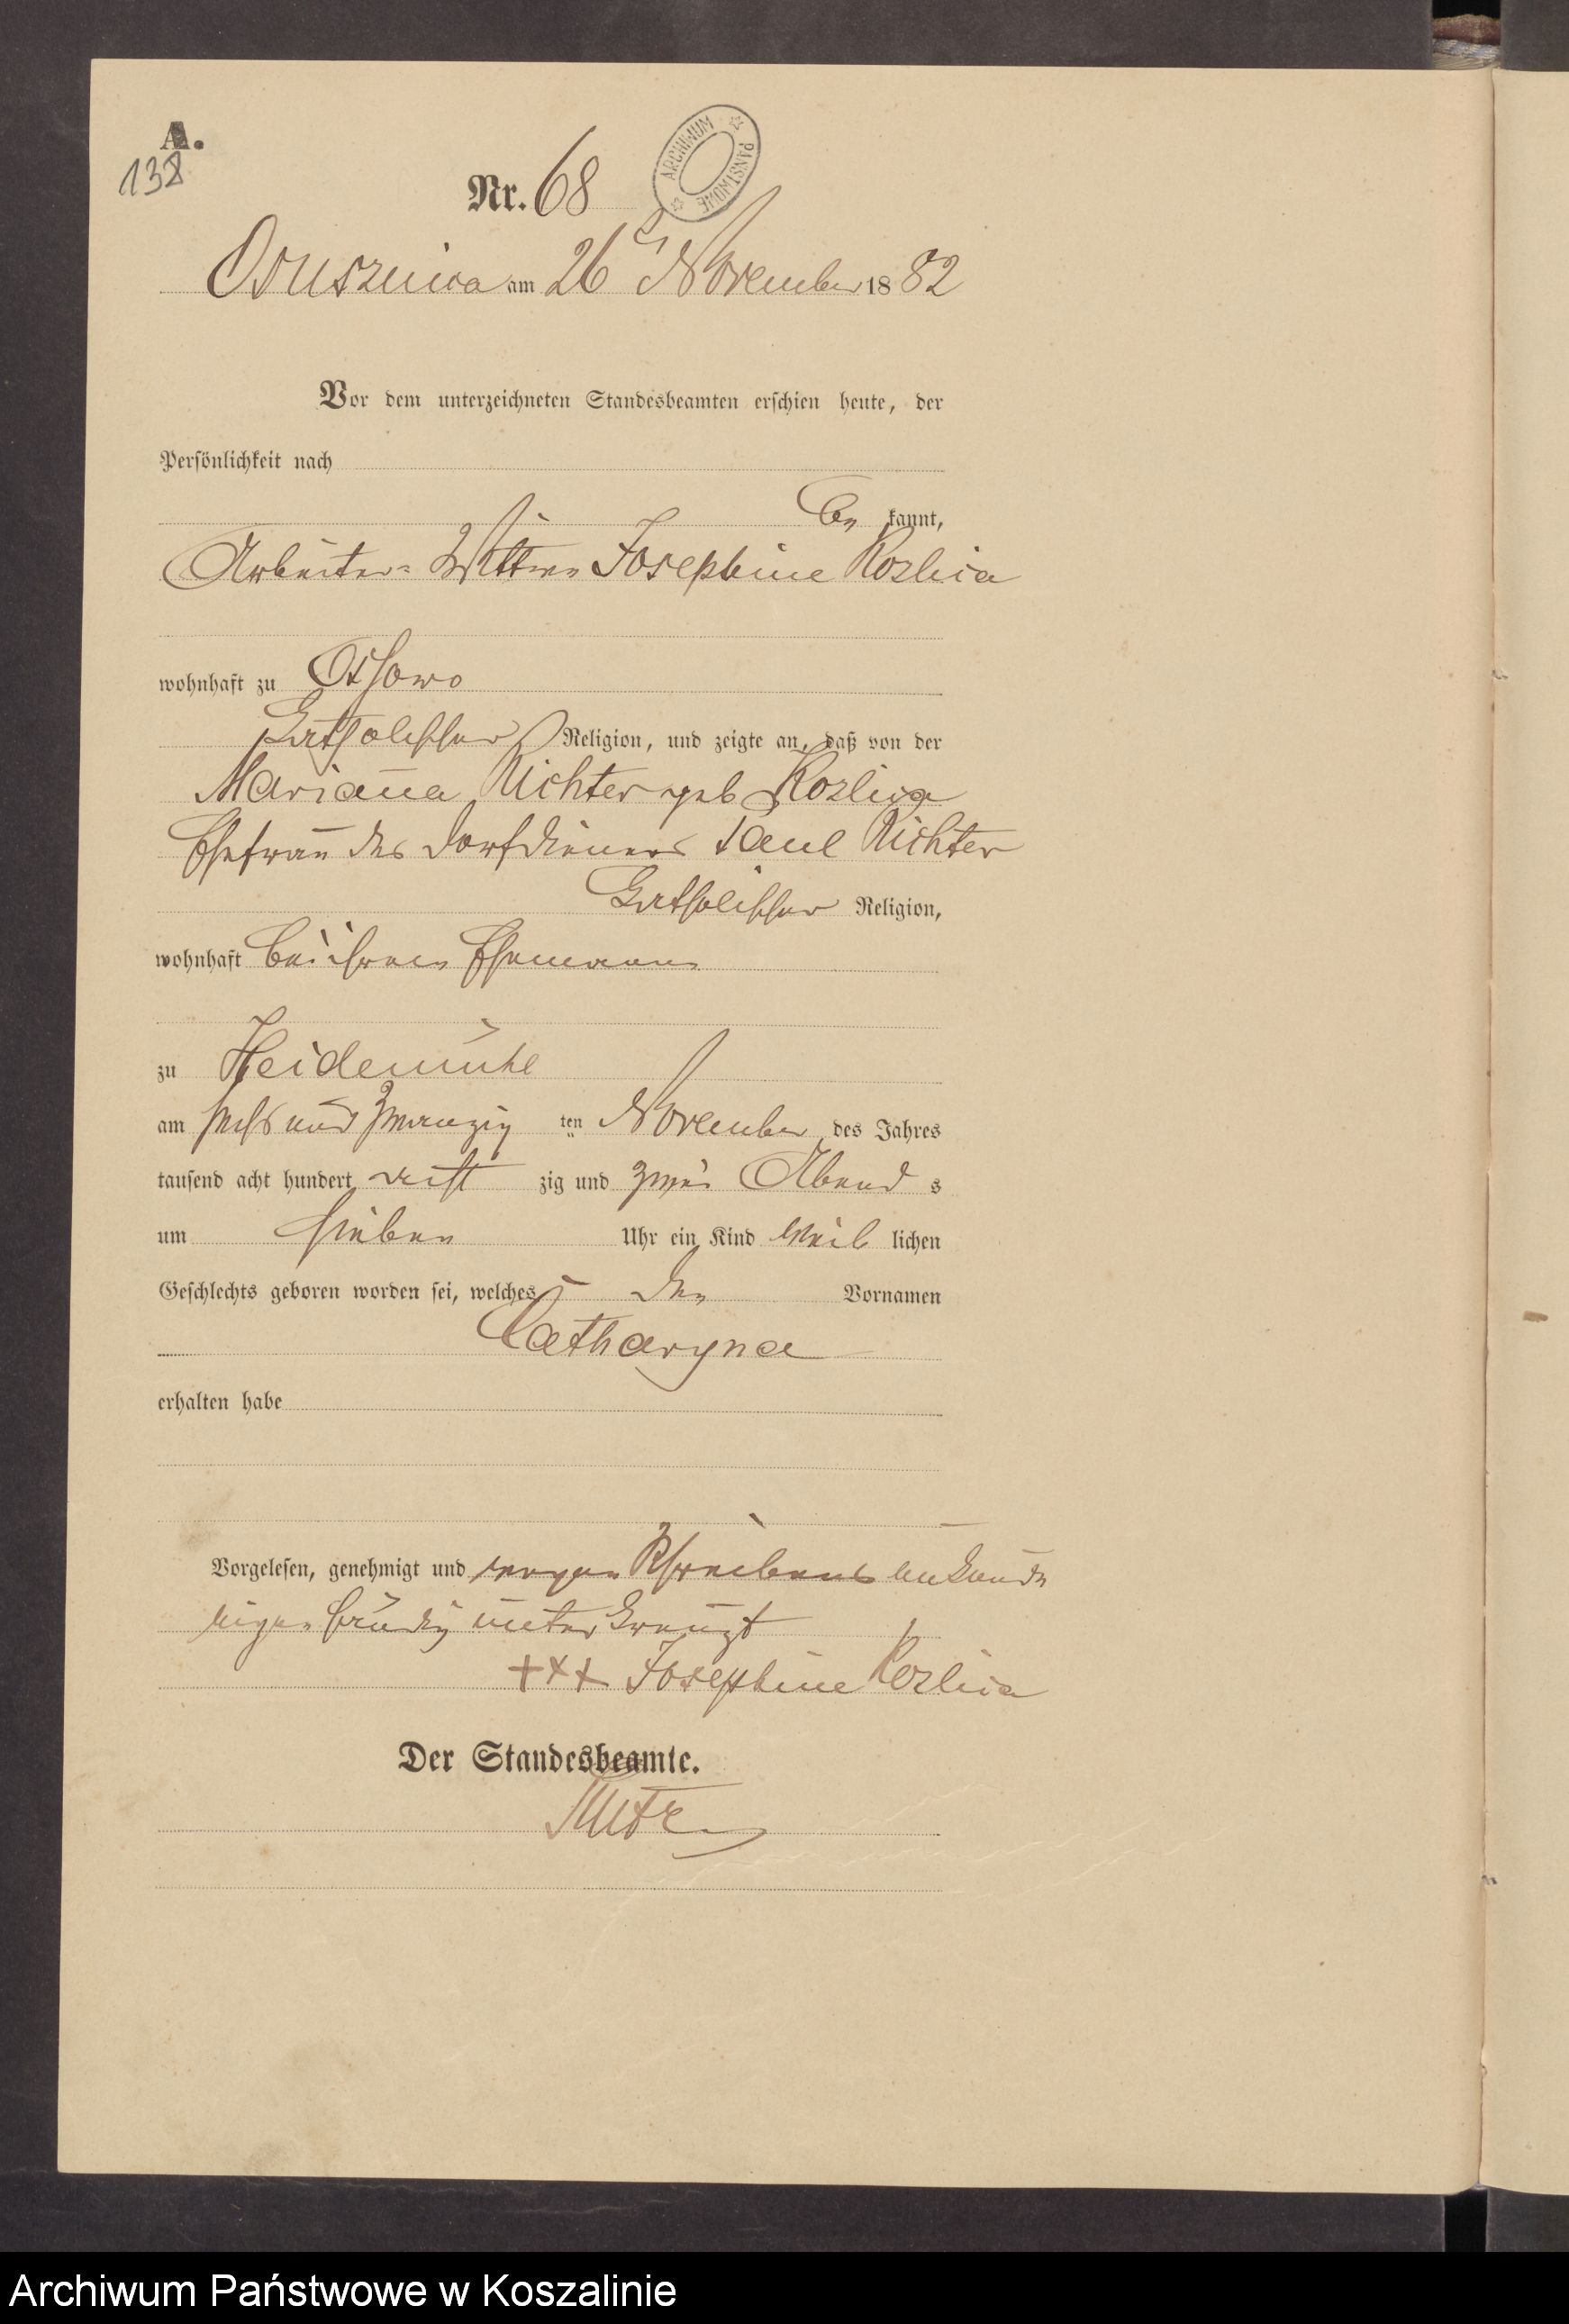 A.
138
Nr. 68
ARCHIWUM PAŃSTWOWE
Osusznica am 26 November 1882
Vor dem unterzeichneten Standesbeamten erschien heute, der
Persönlichkeit nach
be kannt,
Arbeiter-Wittwe Josephine Kozlica
wohnhaft zu Ossowo
katholischer Religion, und zeigte an, daß von der
Marianna Richter geb Kozlica
Ehefrau des Dorfdieners Paul Richter
katholischer Religion,
wohnhaft bei ihrem Ehemanne
zu Heidemühl
am sechs und zwanzig ten November des Jahres
tausend acht hundert acht zig und zwei Abend s
um sieben Uhr ein Kind weib lichen
Geschlechts geboren worden sei, welches den Vornamen
Catharyna
erhalten habe
Vorgelesen, genehmigt und wegen Schreibens unkunde
unterkreuzt
+++ Josephine Kozlica
Der Standesbeamte.
Archiwum Państwowe w Koszalinie